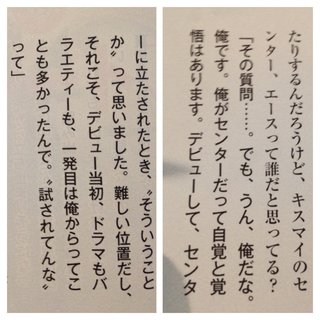 たりするんだろうけど、キスマイのセ
ンター、エースって誰だと思ってる?
「その質問……。でも、うん、俺だな。
俺です。俺がセンターだって自覚と覚
悟はあります。デビューして、センタ
ーに立たされたとき、〝そういうこと
か〟って思いました。難しい位置だし、
それこそ、デビュー当初、ドラマもバ
ラエティーも、一発目は俺からってこ
とも多かったんで。〝試されてんな〟
って」